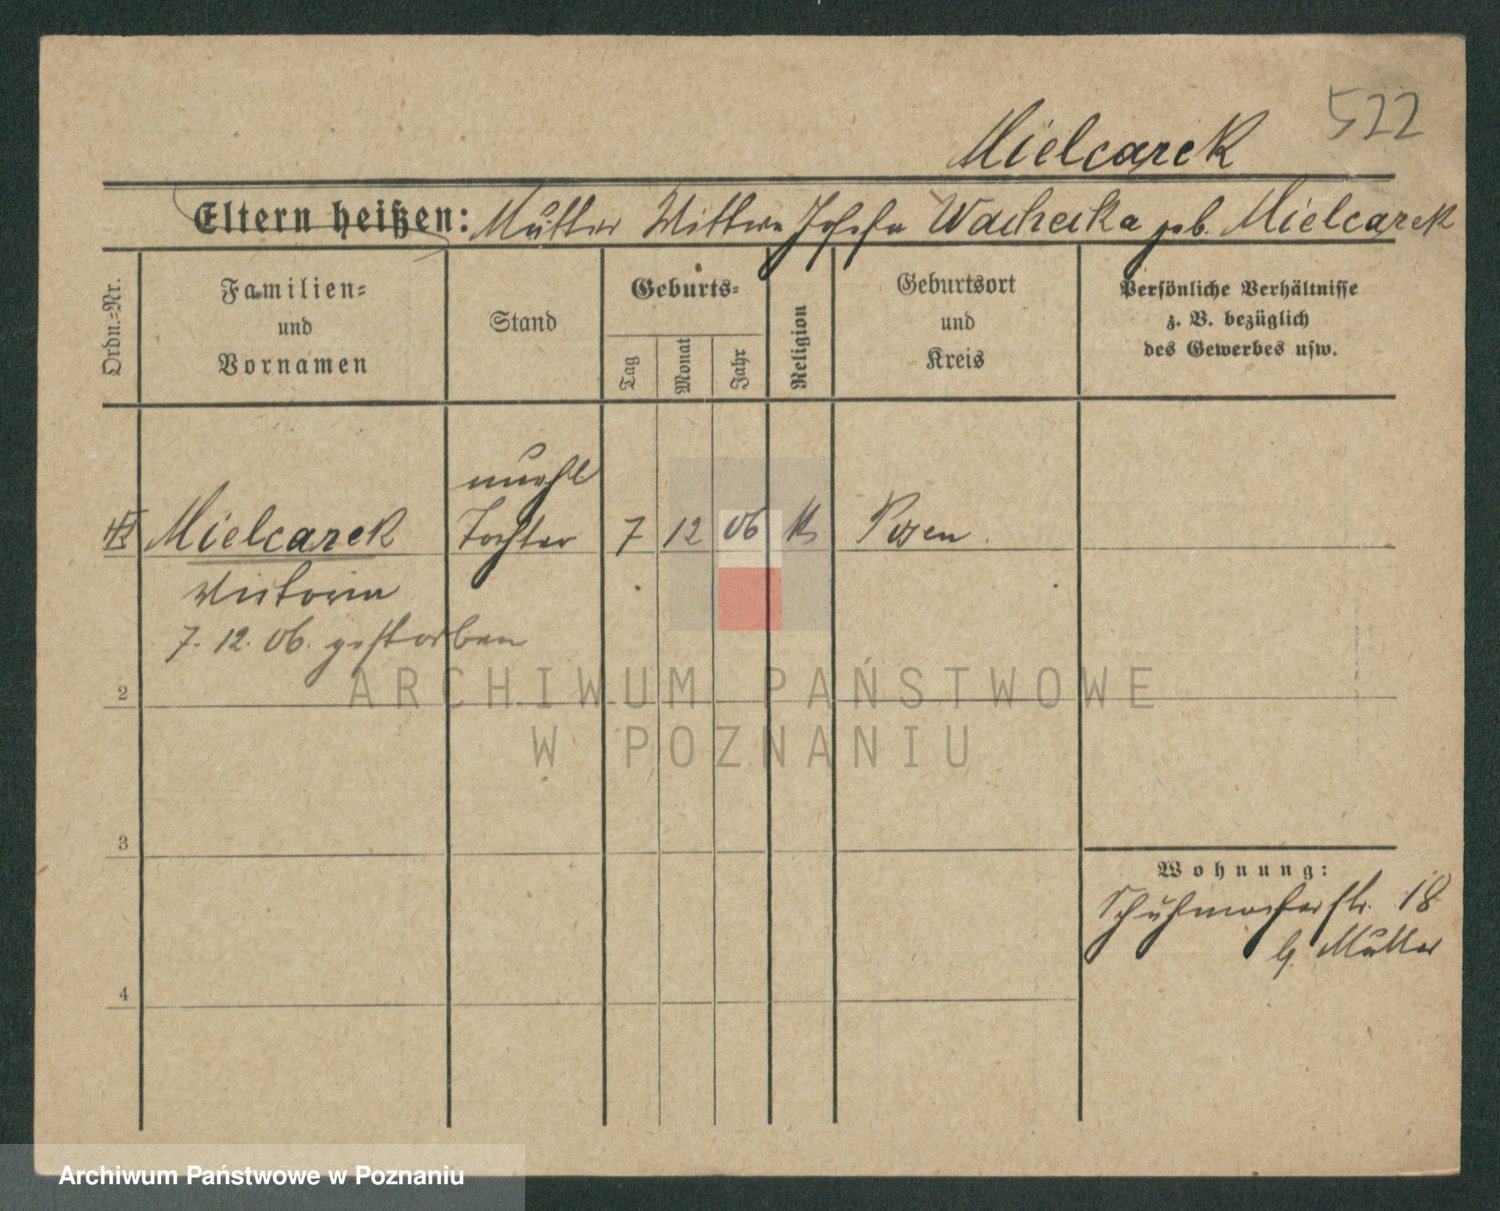 522
Mielcarek
Eltern heißen: Mutter Wittwe Josefa Wacheck­a geb. Mielcarek
Ordn.-Nr.
Familien-
und
Vornamen
Stand
Geburts-
Tag
Monat
Jahr
Religion
Geburtsort
und
Kreis
Persönliche Verhältnisse
z. B. bezüglich
des Gewerbes usw.
unehl
Mielcarek Tochter 7 12 06 k Posen
Victoria
7. 12. 06. gestorben
2
ARCHIWUM PAŃSTWOWE
W POZNANIU
3
Wohnung:
Schuhmacherstr. 18
b. Mutter
4
Archiwum Państwowe w Poznaniu